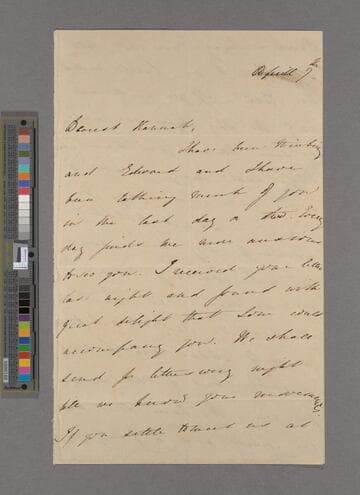 April 7th
Dearest Hannah,
I have been thinking
and Edward and I have
been talking much of you
in the last day or two. Every
day finds me more anxious
to see you. I received your letter
last night and found with
great delight that Tom could
accompany you. We shall
send for letters every night
let us know your movements.
If you settle to meet us at